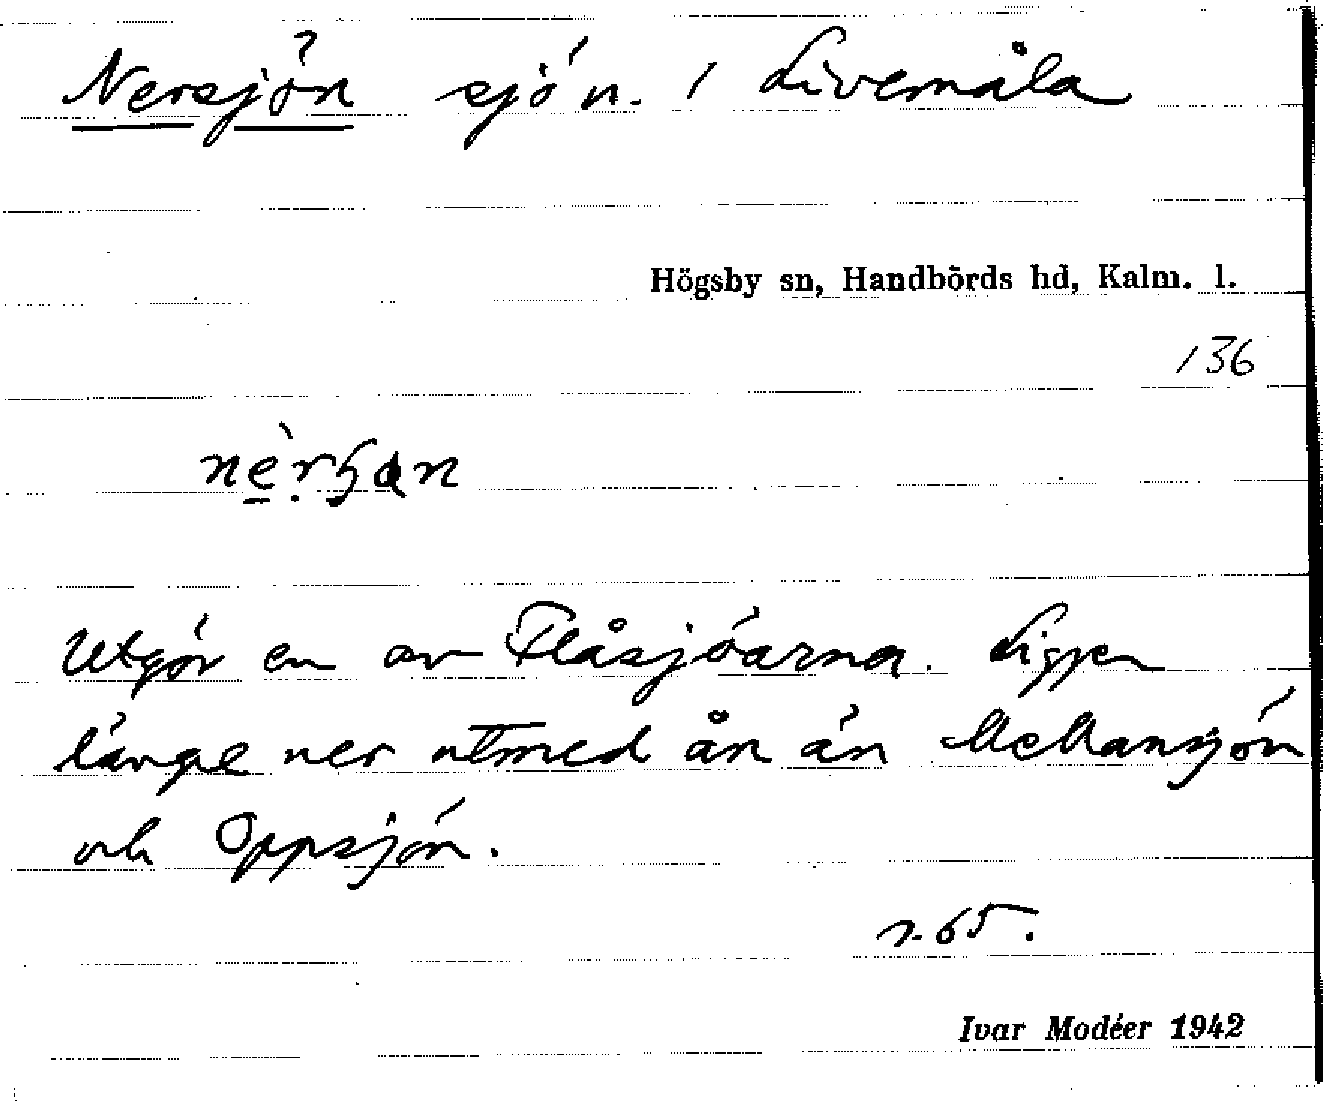 Nersjön sjön. i Livemåla
Högsby sn, Handbörds hd, Kalm. l.
136
Utgör en av Flåsjöarna. Ligger
länge ner utmed ån än Mellansjön
och Oppsjön.
s. 65.
Ivar Modéer 1942